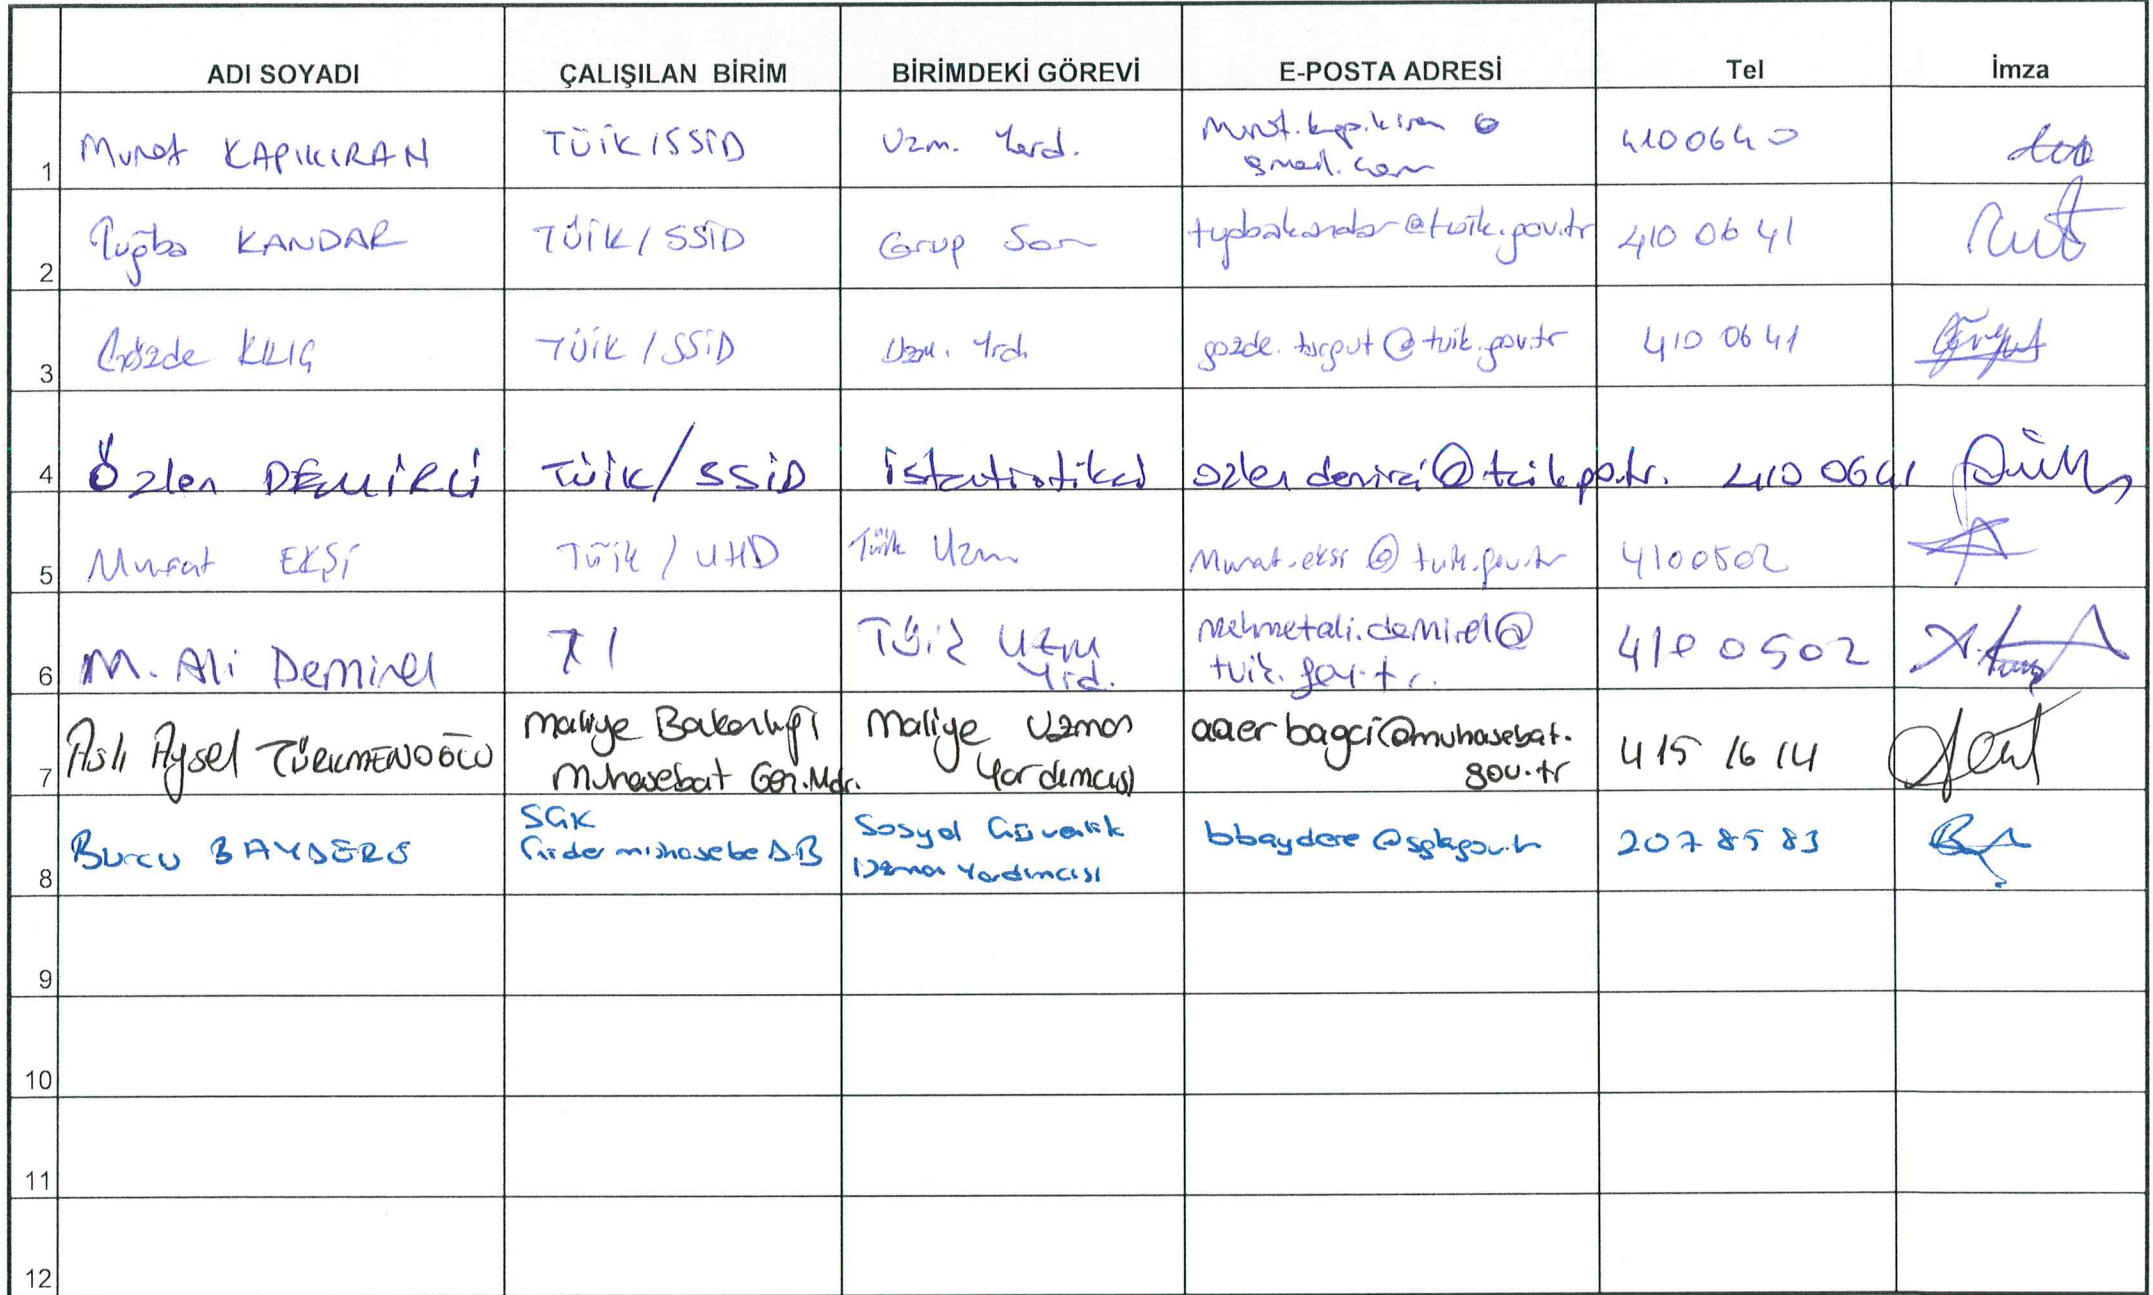 ADI SOYADI ÇALIŞILAN BİRİM BİRİMDEKİ GÖREVİ E-POSTA ADRESİ Tel İmza
1 Murat KAPIKIRAN TÜİK/SSİD Uzm. Yard. murat.kapikiran @ gmail.com 4100640
2 Tuğba KANDAR TÜİK/SSİD Grup Sor tugbakandar@tuik.gov.tr 410 06 41
3 Gözde KILIÇ TÜİK/SSİD Uzm. Yrd. gozde.turgut@tuik.gov.tr 410 06 41
4 Özlen DEMİRCİ TÜİK/SSİD İstatistikçi 410 0641
5 Murat EKŞİ TÜİK/UHD TÜİK Uzm murat.eksi@tuik.gov.tr 4100502
6 M. Ali Demirel TÜİK Uzm Yrd. mehmetali.demirel@ tuik.gov.tr. 410 0502
7 Aslı Aysel TÜRKMENOĞLU Maliye Bakanlığı Muhasebat Gen.Mdr. Maliye Uzman Yardımcısı aaerbagci@muhasebat. gov.tr 415 16 14
8 Burcu BAYDERE SGK Gider muhasebe DB Sosyal Güvenlik Uzman Yardımcısı bbaydere@sgk.gov.tr 207 85 83
9
10
11
12